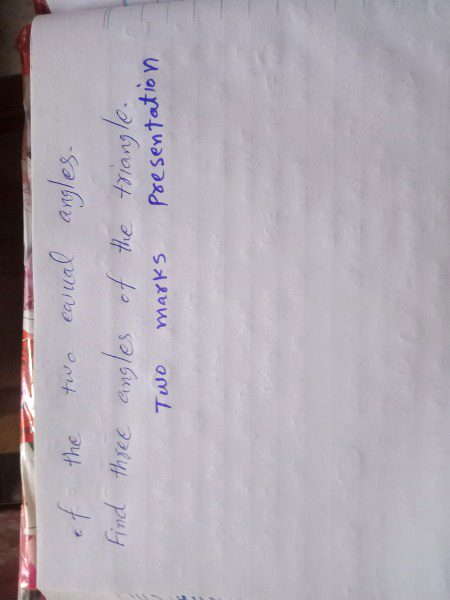 of the two equal angles.
Find three angles of the triangle.
Two marks Presentation